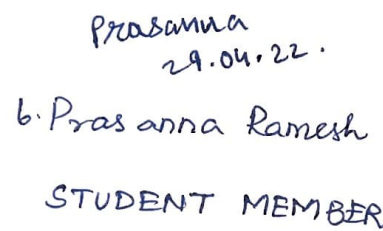 Prasanna
29.04.22.
6. Prasanna Ramesh
STUDENT MEMBER